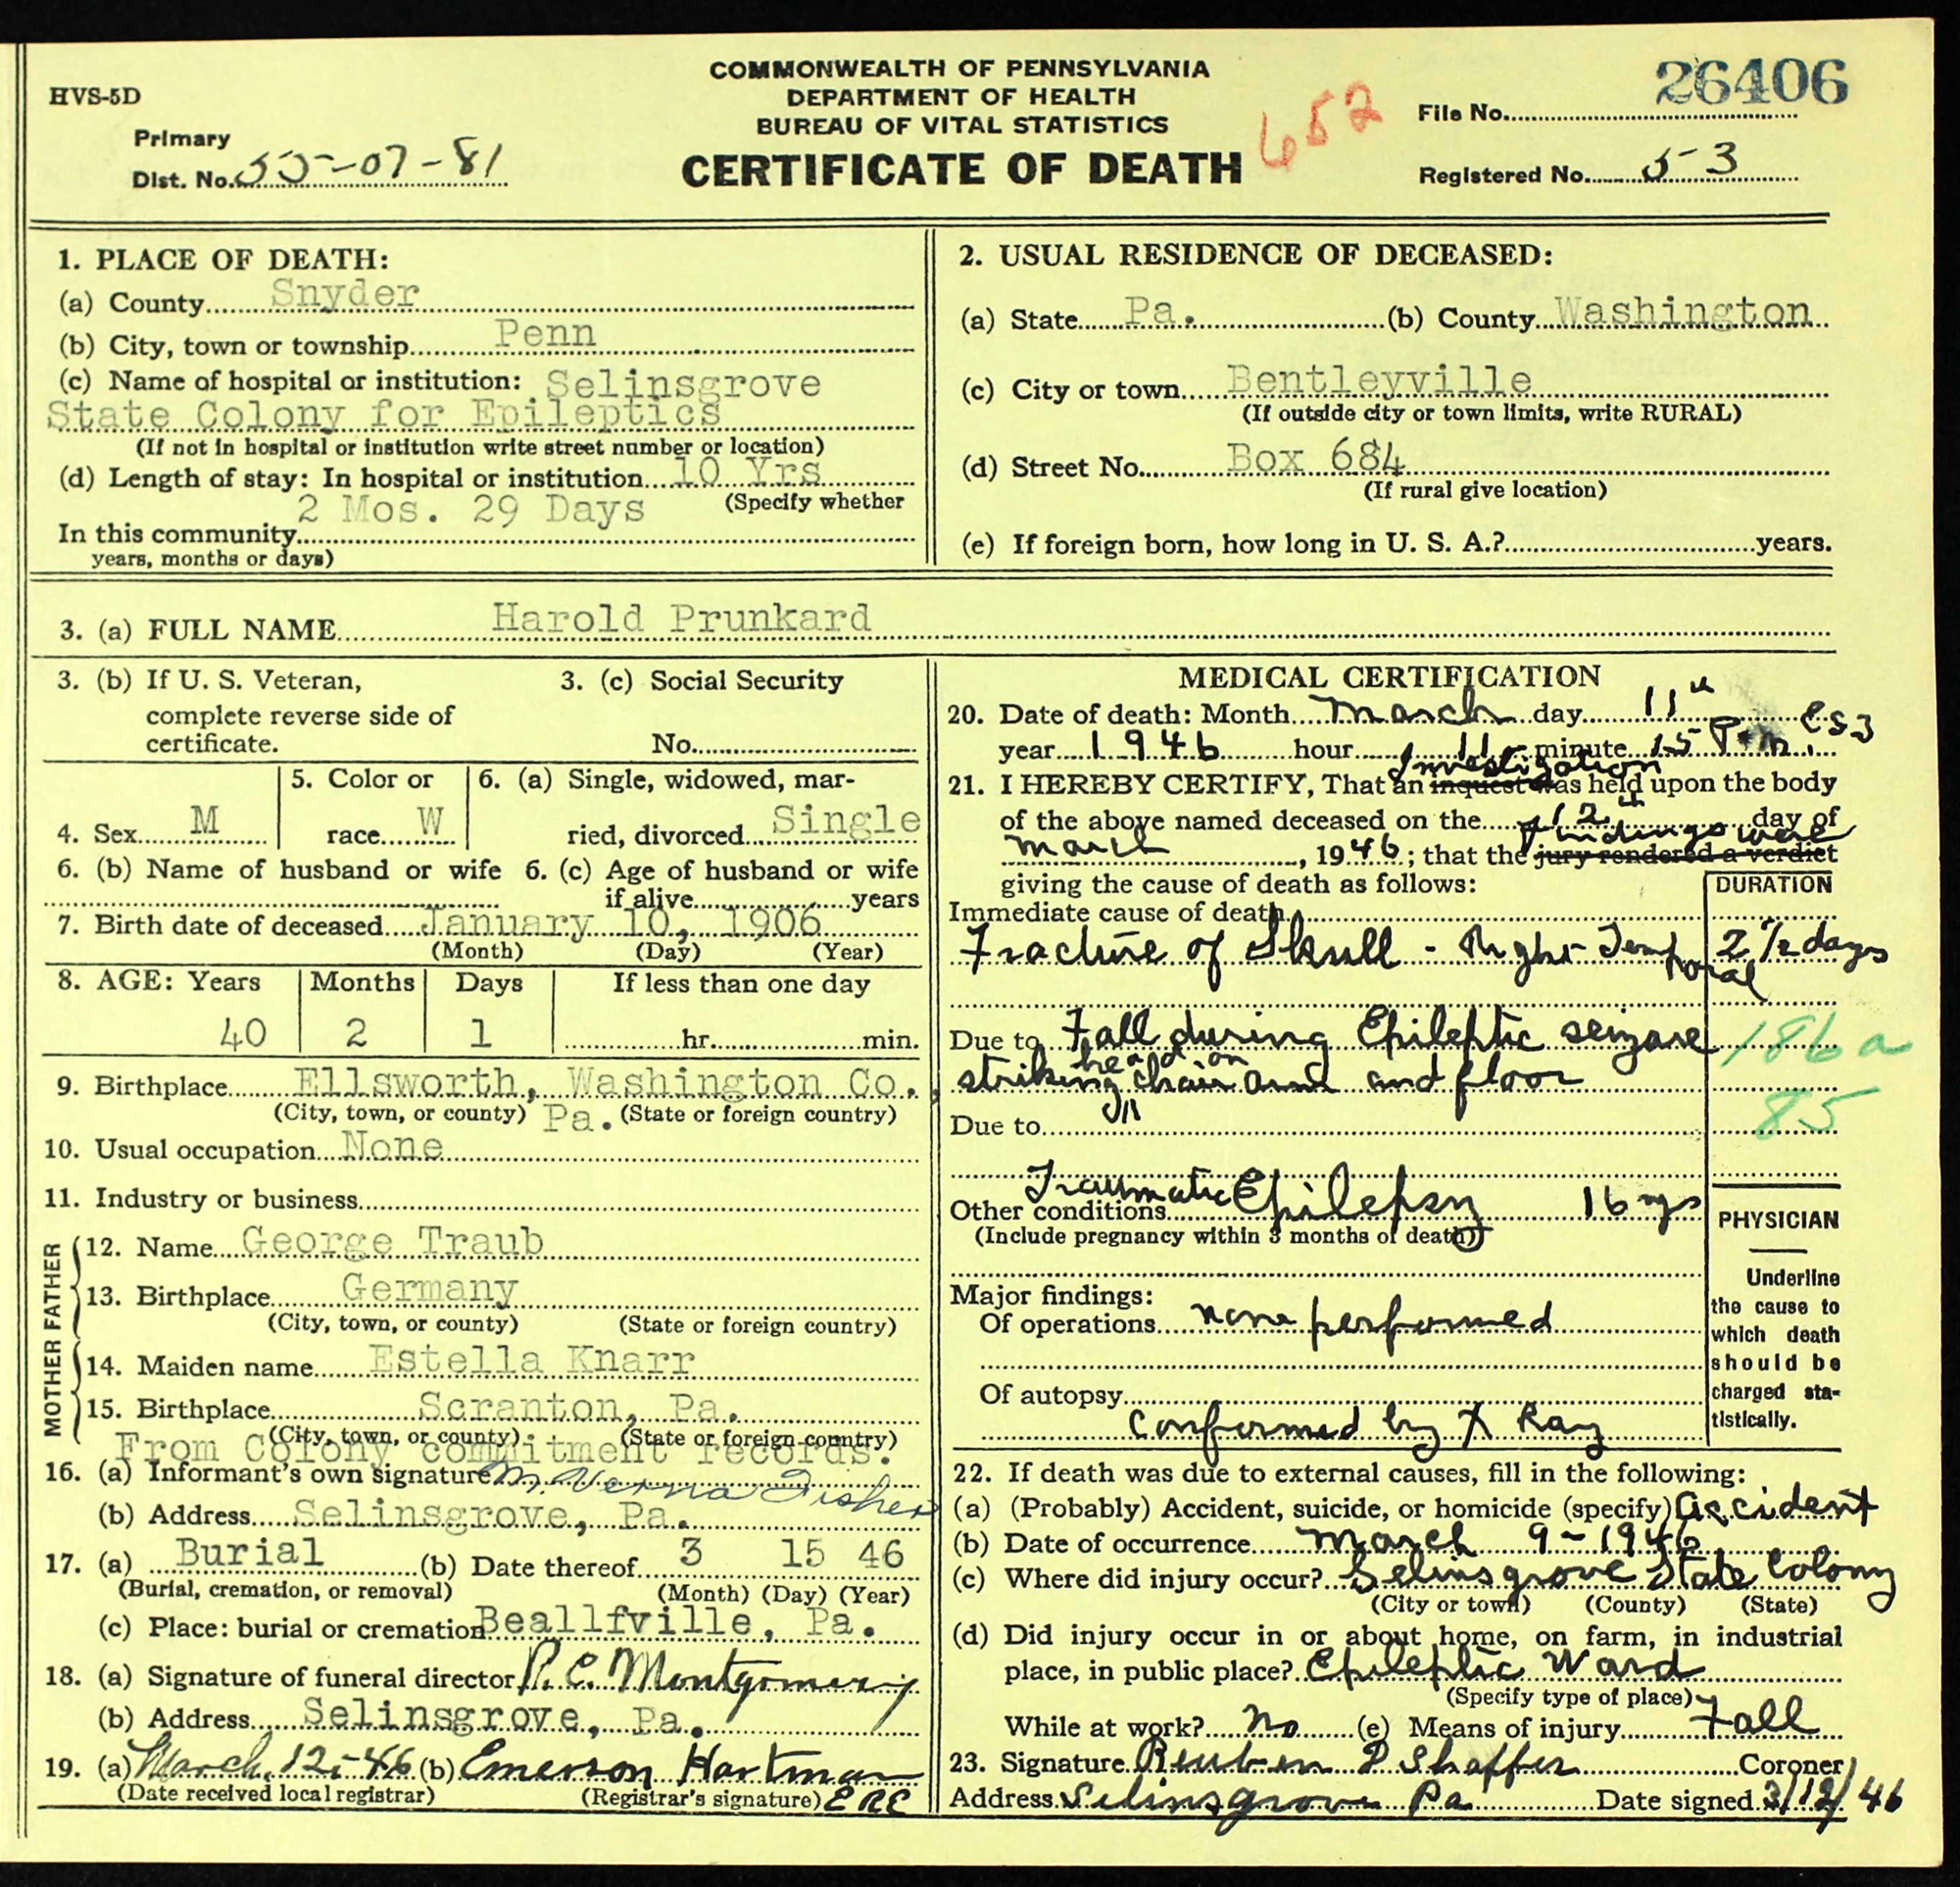 HVS-5D
COMMONWEALTH OF PENNSYLVANIA
DEPARTMENT OF HEALTH
BUREAU OF VITAL STATISTICS
CERTIFICATE OF DEATH
652
26406
File No.
Primary
Dist. No. 55-07-81
Registered No. 53
1. PLACE OF DEATH:
(a) County Snyder
(b) City, town or township Penn
(c) Name of hospital or institution: Selinsgrove
State Colony for Epileptics
(If not in hospital or institution write street number or location)
(d) Length of stay: In hospital or institution 10 Yrs
2 Mos. 29 Days (Specify whether
In this community
years, months or days)
2. USUAL RESIDENCE OF DECEASED:
(a) State Pa. (b) County Washington
(c) City or town Bentleyville
(If outside city or town limits, write RURAL)
(d) Street No. Box 684
(If rural give location)
(e) If foreign born, how long in U. S. A.? years.
3. (a) FULL NAME Harold Prunkard
3. (b) If U. S. Veteran, 3. (c) Social Security
complete reverse side of
certificate. No.
4. Sex M
5. Color or
race W
6. (a) Single, widowed, mar-
ried, divorced Single
6. (b) Name of husband or wife 6. (c) Age of husband or wife
if alive years
7. Birth date of deceased January 10, 1906
(Month) (Day) (Year)
8. AGE: Years Months Days If less than one day
40 2 1 hr. min.
9. Birthplace Ellsworth, Washington Co.,
(City, town, or county) Pa. (State or foreign country)
10. Usual occupation None
11. Industry or business
FATHER
12. Name George Traub
13. Birthplace Germany
(City, town, or county) (State or foreign country)
MOTHER
14. Maiden name Estella Knarr
15. Birthplace Scranton, Pa.
(City, town, or county) (State or foreign country)
From Colony commitment records.
16. (a) Informant's own signature M. Verna Fisher
(b) Address Selinsgrove, Pa.
17. (a) Burial (b) Date thereof 3 15 46
(Burial, cremation, or removal) (Month) (Day) (Year)
(c) Place: burial or cremation Beallfville, Pa.
18. (a) Signature of funeral director P. C. Montgomery
(b) Address Selinsgrove, Pa.
19. (a) March 12-46 (b) Emerson Hartman
(Date received local registrar) (Registrar's signature) ERE
MEDICAL CERTIFICATION
20. Date of death: Month March day 11th
year 1946 hour 11 minute 15 P.m.
Investigation
21. I HEREBY CERTIFY, That an inquest was held upon the body
of the above named deceased on the 12 day of
findings were
March, 1946; that the jury rendered a verdict
giving the cause of death as follows:
DURATION
Immediate cause of death
Fracture of Skull - Right Temporal 2 1/2 days
Due to Fall during Epileptic seizure 186a
head on
striking chair arm and floor
Due to 85
Traumatic
Other conditions Epilepsy 16 yrs
(Include pregnancy within 3 months of death)
Major findings:
Of operations none performed
Of autopsy
conformed by X Ray
PHYSICIAN
Underline
the cause to
which death
should be
charged sta-
tistically.
22. If death was due to external causes, fill in the following:
(a) (Probably) Accident, suicide, or homicide (specify) accident
(b) Date of occurrence March 9-1946
(c) Where did injury occur? Selinsgrove State Colony
(City or town) (County) (State)
(d) Did injury occur in or about home, on farm, in industrial
place, in public place? Epileptic Ward
(Specify type of place)
While at work? no (e) Means of injury Fall
23. Signature Reuben P Shaffer Coroner
Address Selinsgrove Pa Date signed 3/12/46